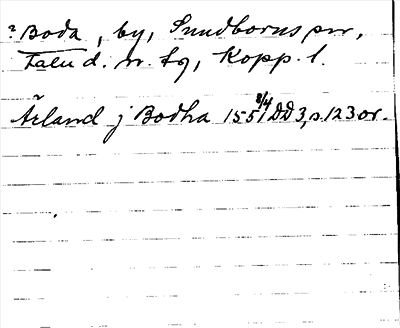 ? Boda, by, Sundborns snr,
Falu d. n. tg, Kopp. l.
Ärland j Bodha 1551 8/4 DD 3, s. 123 or.